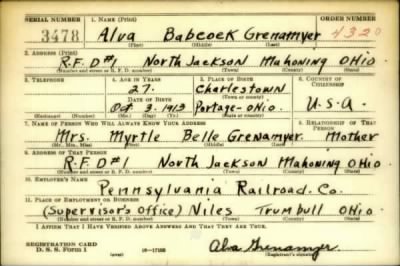 SERIAL NUMBER 1. NAME (Print) ORDER NUMBER
3478 Alva Babcock Grenamyer 4320
(First) (Middle) (Last)
2. ADDRESS (Print)
R.F.D#1 North Jackson Mahoning Ohio
(Number and street or R. F. D. number) (Town) (County) (State)
3. TELEPHONE 4. AGE IN YEARS 5. PLACE OF BIRTH 6. COUNTRY OF CITIZENSHIP
27. Charlestown
DATE OF BIRTH (Town or county)
Oct 3, 1913 Portage-Ohio. U.S.A.
(Exchange) (Number) (Mo.) (Day) (Yr.) (State or country)
7. NAME OF PERSON WHO WILL ALWAYS KNOW YOUR ADDRESS 8. RELATIONSHIP OF THAT PERSON
Mrs. Myrtle Belle Grenamyer Mother
(Mr., Mrs., Miss) (First) (Middle) (Last)
9. ADDRESS OF THAT PERSON
R.F.D#1 North Jackson Mahoning Ohio
(Number and street or R. F. D. number) (Town) (County) (State)
10. EMPLOYER'S NAME
Pennsylvania Railroad. Co.
11. PLACE OF EMPLOYMENT OR BUSINESS
(Supervisor's Office) Niles Trumbull Ohio.
(Number and street or R. F. D. number) (Town) (County) (State)
I AFFIRM THAT I HAVE VERIFIED ABOVE ANSWERS AND THAT THEY ARE TRUE.
REGISTRATION CARD
D. S. S. Form 1 Alva Grenamyer
(Registrant's signature)